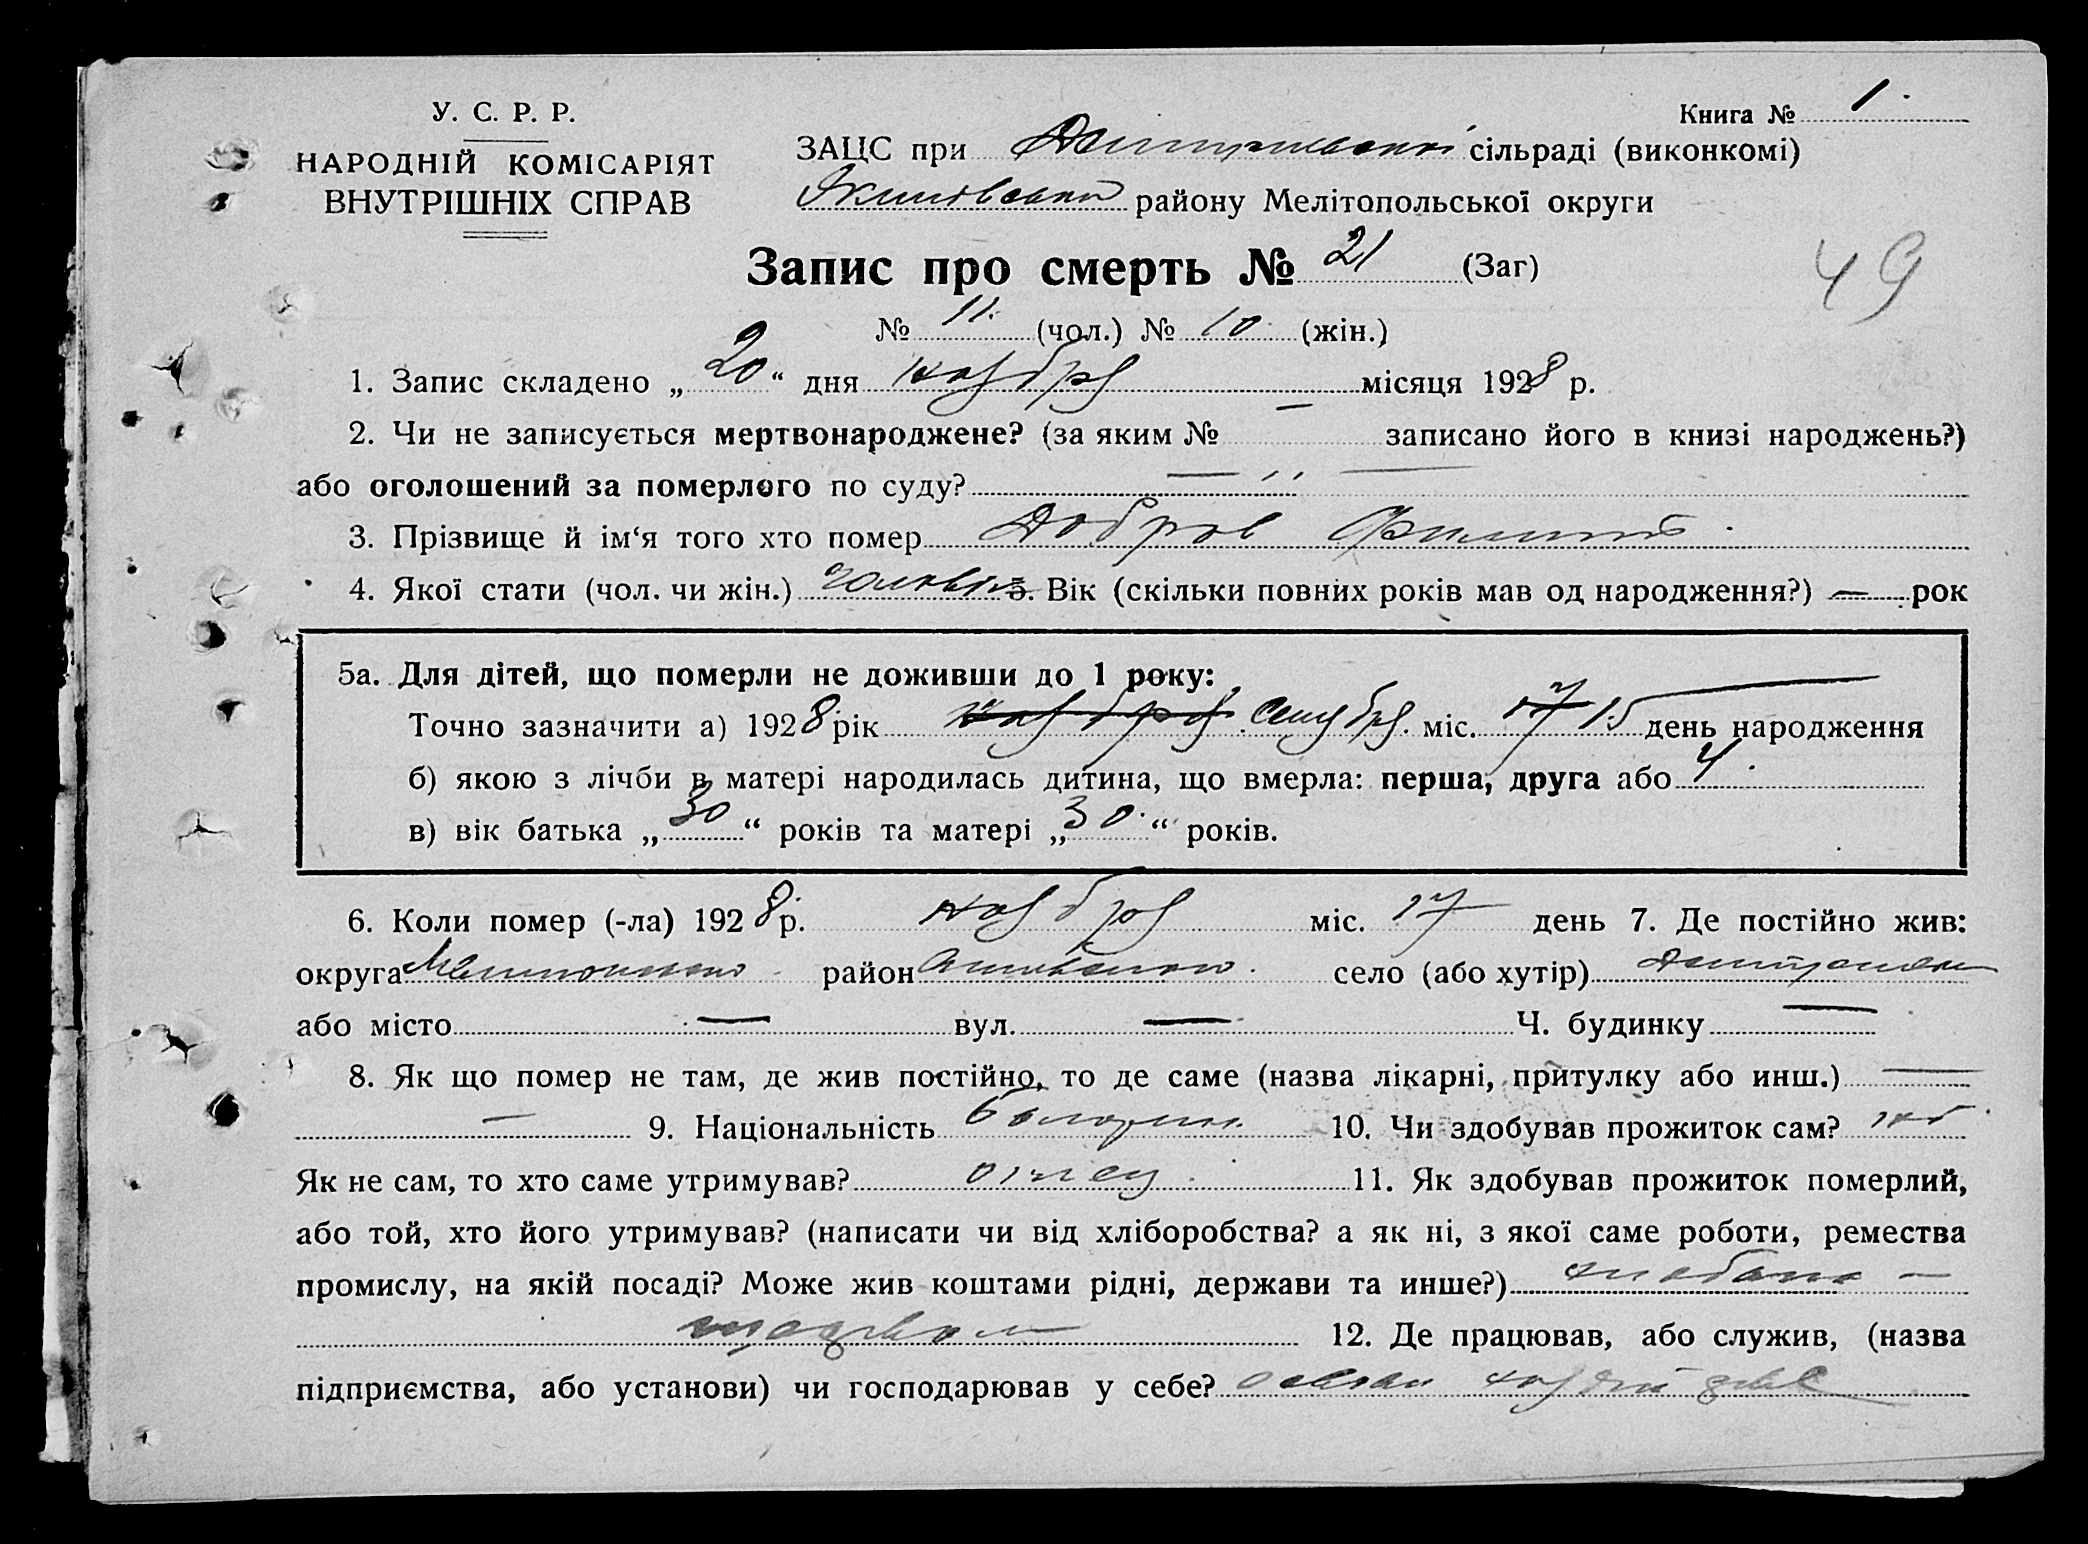 У. С. Р. Р.
НАРОДНІЙ КОМІСАРІЯТ
ВНУТРІШНІХ СПРАВ
Книга № 1.
ЗАЦС при сільраді (виконкомі)
району Мелітопольської округи
Запис про смерть № 21 (Заг)
49
№ 11. (чол.) № 10 (жін.)
1. Запис складено „ 20 “ дня ноября місяця 1928 р.
2. Чи не записується мертвонароджене? (за яким № — записано його в книзі народжень?)
або оголошений за померлого по суду? —
3. Прізвище й ім‘я того хто помер Добров Филипп.
4. Якої стати (чол. чи жін.) чоловік 5. Вік (скільки повних років мав од народження?) — рок
5а. Для дітей, що померли не доживши до 1 року:
Точно зазначити а) 1928 рік ноября міс. 17 15 день народження
б) якою з лічби в матері народилась дитина, що вмерла: перша, друга або 4.
в) вік батька „ 30 “ років та матері „ 30 “ років.
6. Коли помер (-ла) 1928 р. ноября міс. 17 день 7. Де постійно жив:
округа район село (або хутір)
або місто — вул. — Ч. будинку —
8. Як що помер не там, де жив постійно, то де саме (назва лікарні, притулку або инш.) —
— 9. Національність болгарин. 10. Чи здобував прожиток сам? ні
Як не сам, то хто саме утримував? отец. 11. Як здобував прожиток померлий,
або той, хто його утримував? (написати чи від хліборобства? а як ні, з якої саме роботи, ремества
промислу, на якій посаді? Може жив коштами рідні, держави та инше?)
12. Де працював, або служив, (назва
підприємства, або установи) чи господарював у себе?